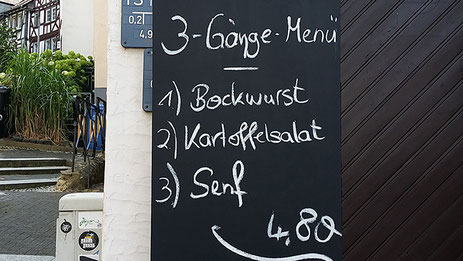 0,2
4,9
3-Gänge-Menü
1) Bockwurst
2) Kartoffelsalat
3) Senf
4,80